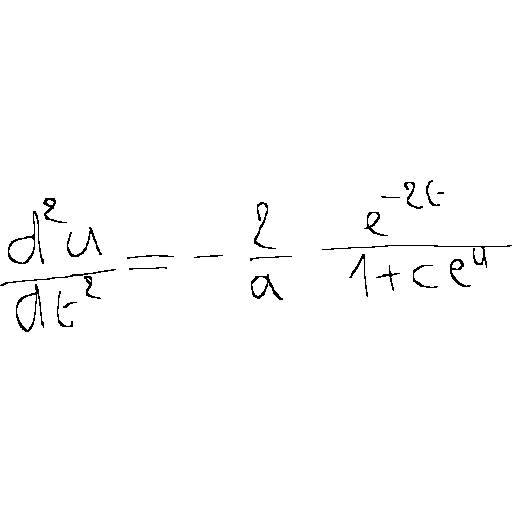 \frac{d^2 u}{dt^2} = - \frac{2}{a} \frac{e^{-2t}}{1 + c e^u}